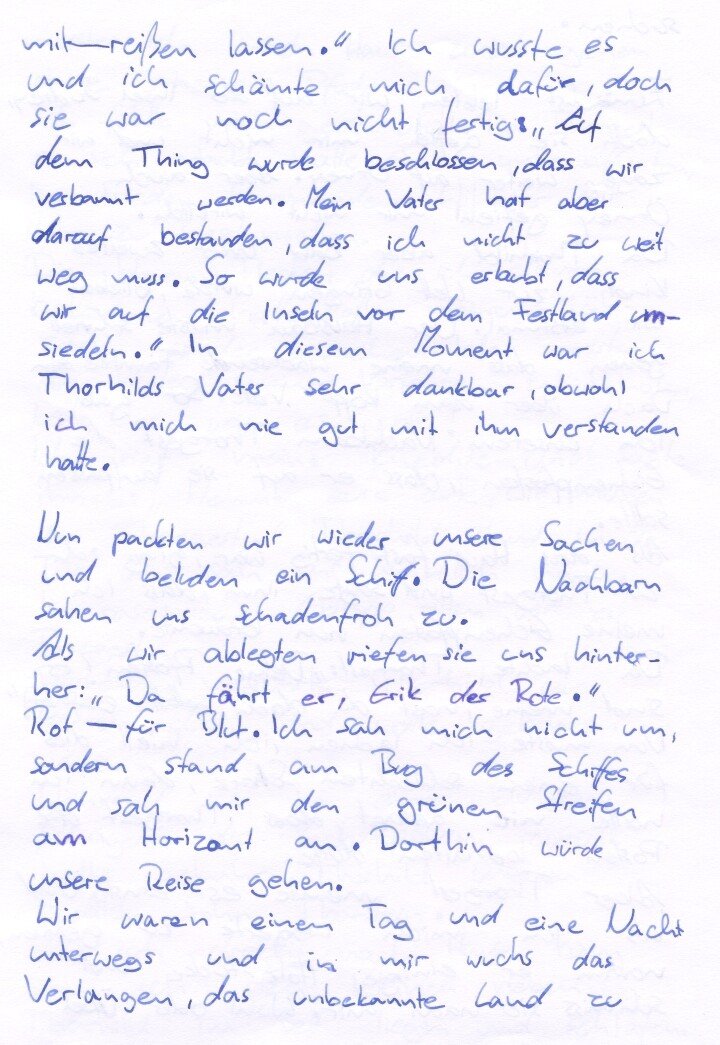 mit-reißen lassen." Ich wusste es
und ich schämte mich dafür, doch
sie war noch nicht fertig: „Auf
dem Thing wurde beschlossen, dass wir
verbannt werden. Mein Vater hat aber
darauf bestanden, dass ich nicht zu weit
weg muss. So wurde uns erlaubt, dass
wir auf die Inseln vor dem Festland um-
siedeln." In diesem Moment war ich
Thorhilds Vater sehr dankbar, obwohl
ich mich nie gut mit ihm verstanden
hatte.
Nun packten wir wieder unsere Sachen
und beluden ein Schiff. Die Nachbarn
sahen uns schadenfroh zu.
Als wir ablegten riefen sie uns hinter-
her: „Da fährt er, Erik der Rote."
Rot – für Blut. Ich sah mich nicht um,
sondern stand am Bug des Schiffes
und sah mir den grünen Streifen
am Horizont an. Dorthin würde
unsere Reise gehen.
Wir waren einen Tag und eine Nacht
unterwegs und in mir wuchs das
Verlangen, das unbekannte Land zu